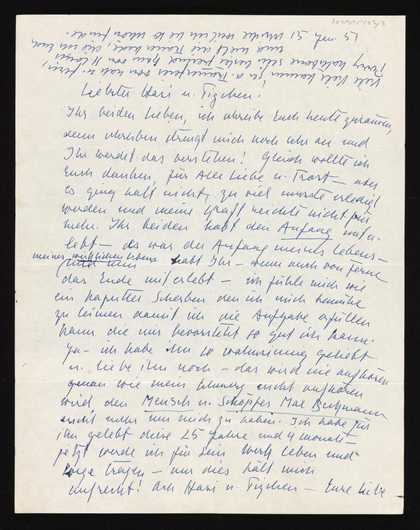 Liebster Hasi u. Tizchen!
Ihr beiden Lieben, ich schreibe Euch heute zusammen,
denn schreiben strengt mich noch sehr an und
Ihr werdet das verstehen! Gleich wollte ich
Euch danken, für Alle Liebe u. Trost – aber
es ging halt nicht, zu viel musste erledigt
werden und meine Kraft reichte nicht für
mehr. Ihr beiden habt den Anfang miter-
lebt – das war der Anfang meines Lebens –
meines wirklichen Lebens habt Ihr – wenn auch von ferne
das Ende miterlebt – ich fühle mich wie
ein kaputter Scherben den ich mich bemühe
zu leimen damit ich die Aufgabe erfüllen
kann die mir bevorsteht so gut ich kann.
Ja – ich habe ihn so wahnsinnig geliebt
u. liebe ihn noch – das wird nie aufhören
genau wie mein nicht aufhören
wird den Mensch u. Schöpfer Max Beckmann
nicht mehr um mich zu haben. Ich habe für
ihn gelebt diese 25 Jahre und 4 Monate
jetzt werde ich für Sein Werk leben und
Sorge tragen – nur dies hält mich
aufrecht! Ach Hasi u. Tizchen – Eure Liebe